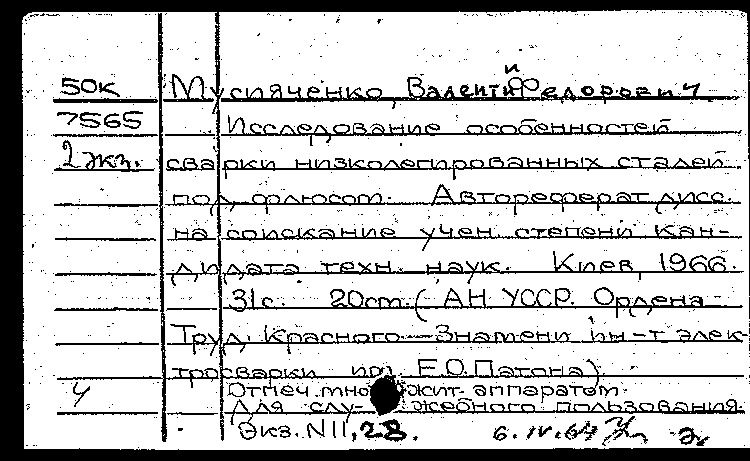 50К Мусияченко, Валентин Федорович
7565 Исследование особенностей
2 экз. сварки низколегированных сталей
под флюсом. Автореферат дисс.
на соискание учен. степени кан-
дидата техн. наук. Киев, 1966.
31с. 20см. (АН УССР. Ордена
Труд. Красного Знамени ин-т элек-
тросварки им. Е.О.Патона)
Отпеч. множит. аппаратом.
Для служебного пользования.
Экз. N 11, 28.